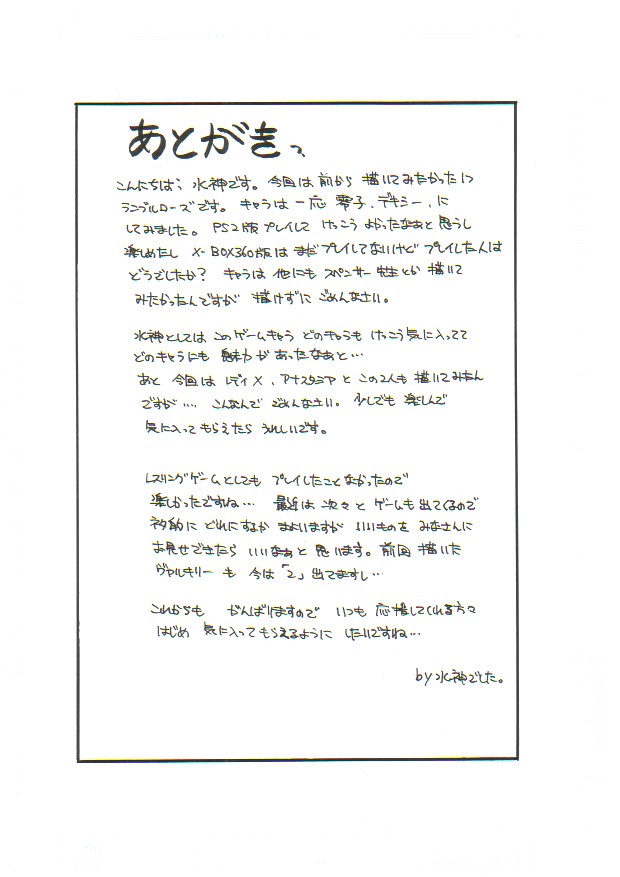 あとがきっ
こんにちは、水神です。今回は前から描いてみたかったコ
ランブルローズです。キャラは一応零子、デキシー、に
してみました。PS2版プレイして けっこうよかったなぁと思うし
楽しめたし X-BOX360版はまだプレイしてないけど プレイした人は
どうでしたか? キャラは他にも スペンサー先生とか 描いて
みたかったんですが 描けずに ごめんなさい。
水神としては このゲームキャラ どのキャラも けっこう気に入ってて
どのキャラにも 魅力があったなぁと…
あと 今回は レディX、アナスタシアと この2人も 描いてみたん
ですが…. こんなんで ごめんなさい。少しでも 楽しんで
気に入ってもらえたら うれしいです。
レスリングゲームとしても プレイしたことなかったので
楽しかったですね… 最近は 次々と ゲームも出てくるので
ネタ的に どれにするか まよいますが いいものを みなさんに
お見せできたら いいなぁと 思います。前回 描いた
ヴァルキリー も 今は「2」出てますし…
これからも がんばりますので いつも 応援してくれる方々
はじめ 気に入ってもらえるように したいですね…
by 水神でした。